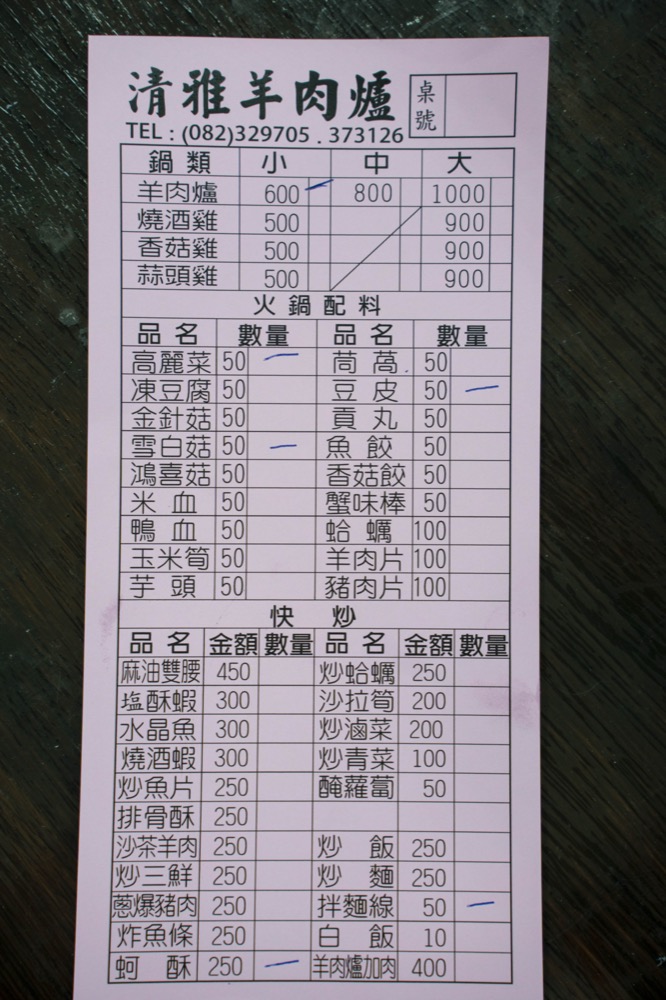 清雅羊肉爐 桌號
TEL : (082)329705 . 373126
鍋類 小 中 大
羊肉爐 600 800 1000
燒酒雞 500 900
香菇雞 500 900
蒜頭雞 500 900
火鍋配料
品名 數量 品名 數量
高麗菜 50 一 茼萵 50
凍豆腐 50 豆皮 50 一
金針菇 50 貢丸 50
雪白菇 50 一 魚餃 50
鴻喜菇 50 香菇餃 50
米血 50 蟹味棒 50
鴨血 50 蛤蠣 100
玉米筍 50 羊肉片 100
芋頭 50 豬肉片 100
快炒
品名 金額 數量 品名 金額 數量
麻油雙腰 450 炒蛤蠣 250
塩酥蝦 300 沙拉筍 200
水晶魚 300 炒滷菜 200
燒酒蝦 300 炒青菜 100
炒魚片 250 醃蘿蔔 50
排骨酥 250
沙茶羊肉 250 炒飯 250
炒三鮮 250 炒麵 250
蔥爆豬肉 250 拌麵線 50 一
炸魚條 250 白飯 10
蚵酥 250 一 羊肉爐加肉 400